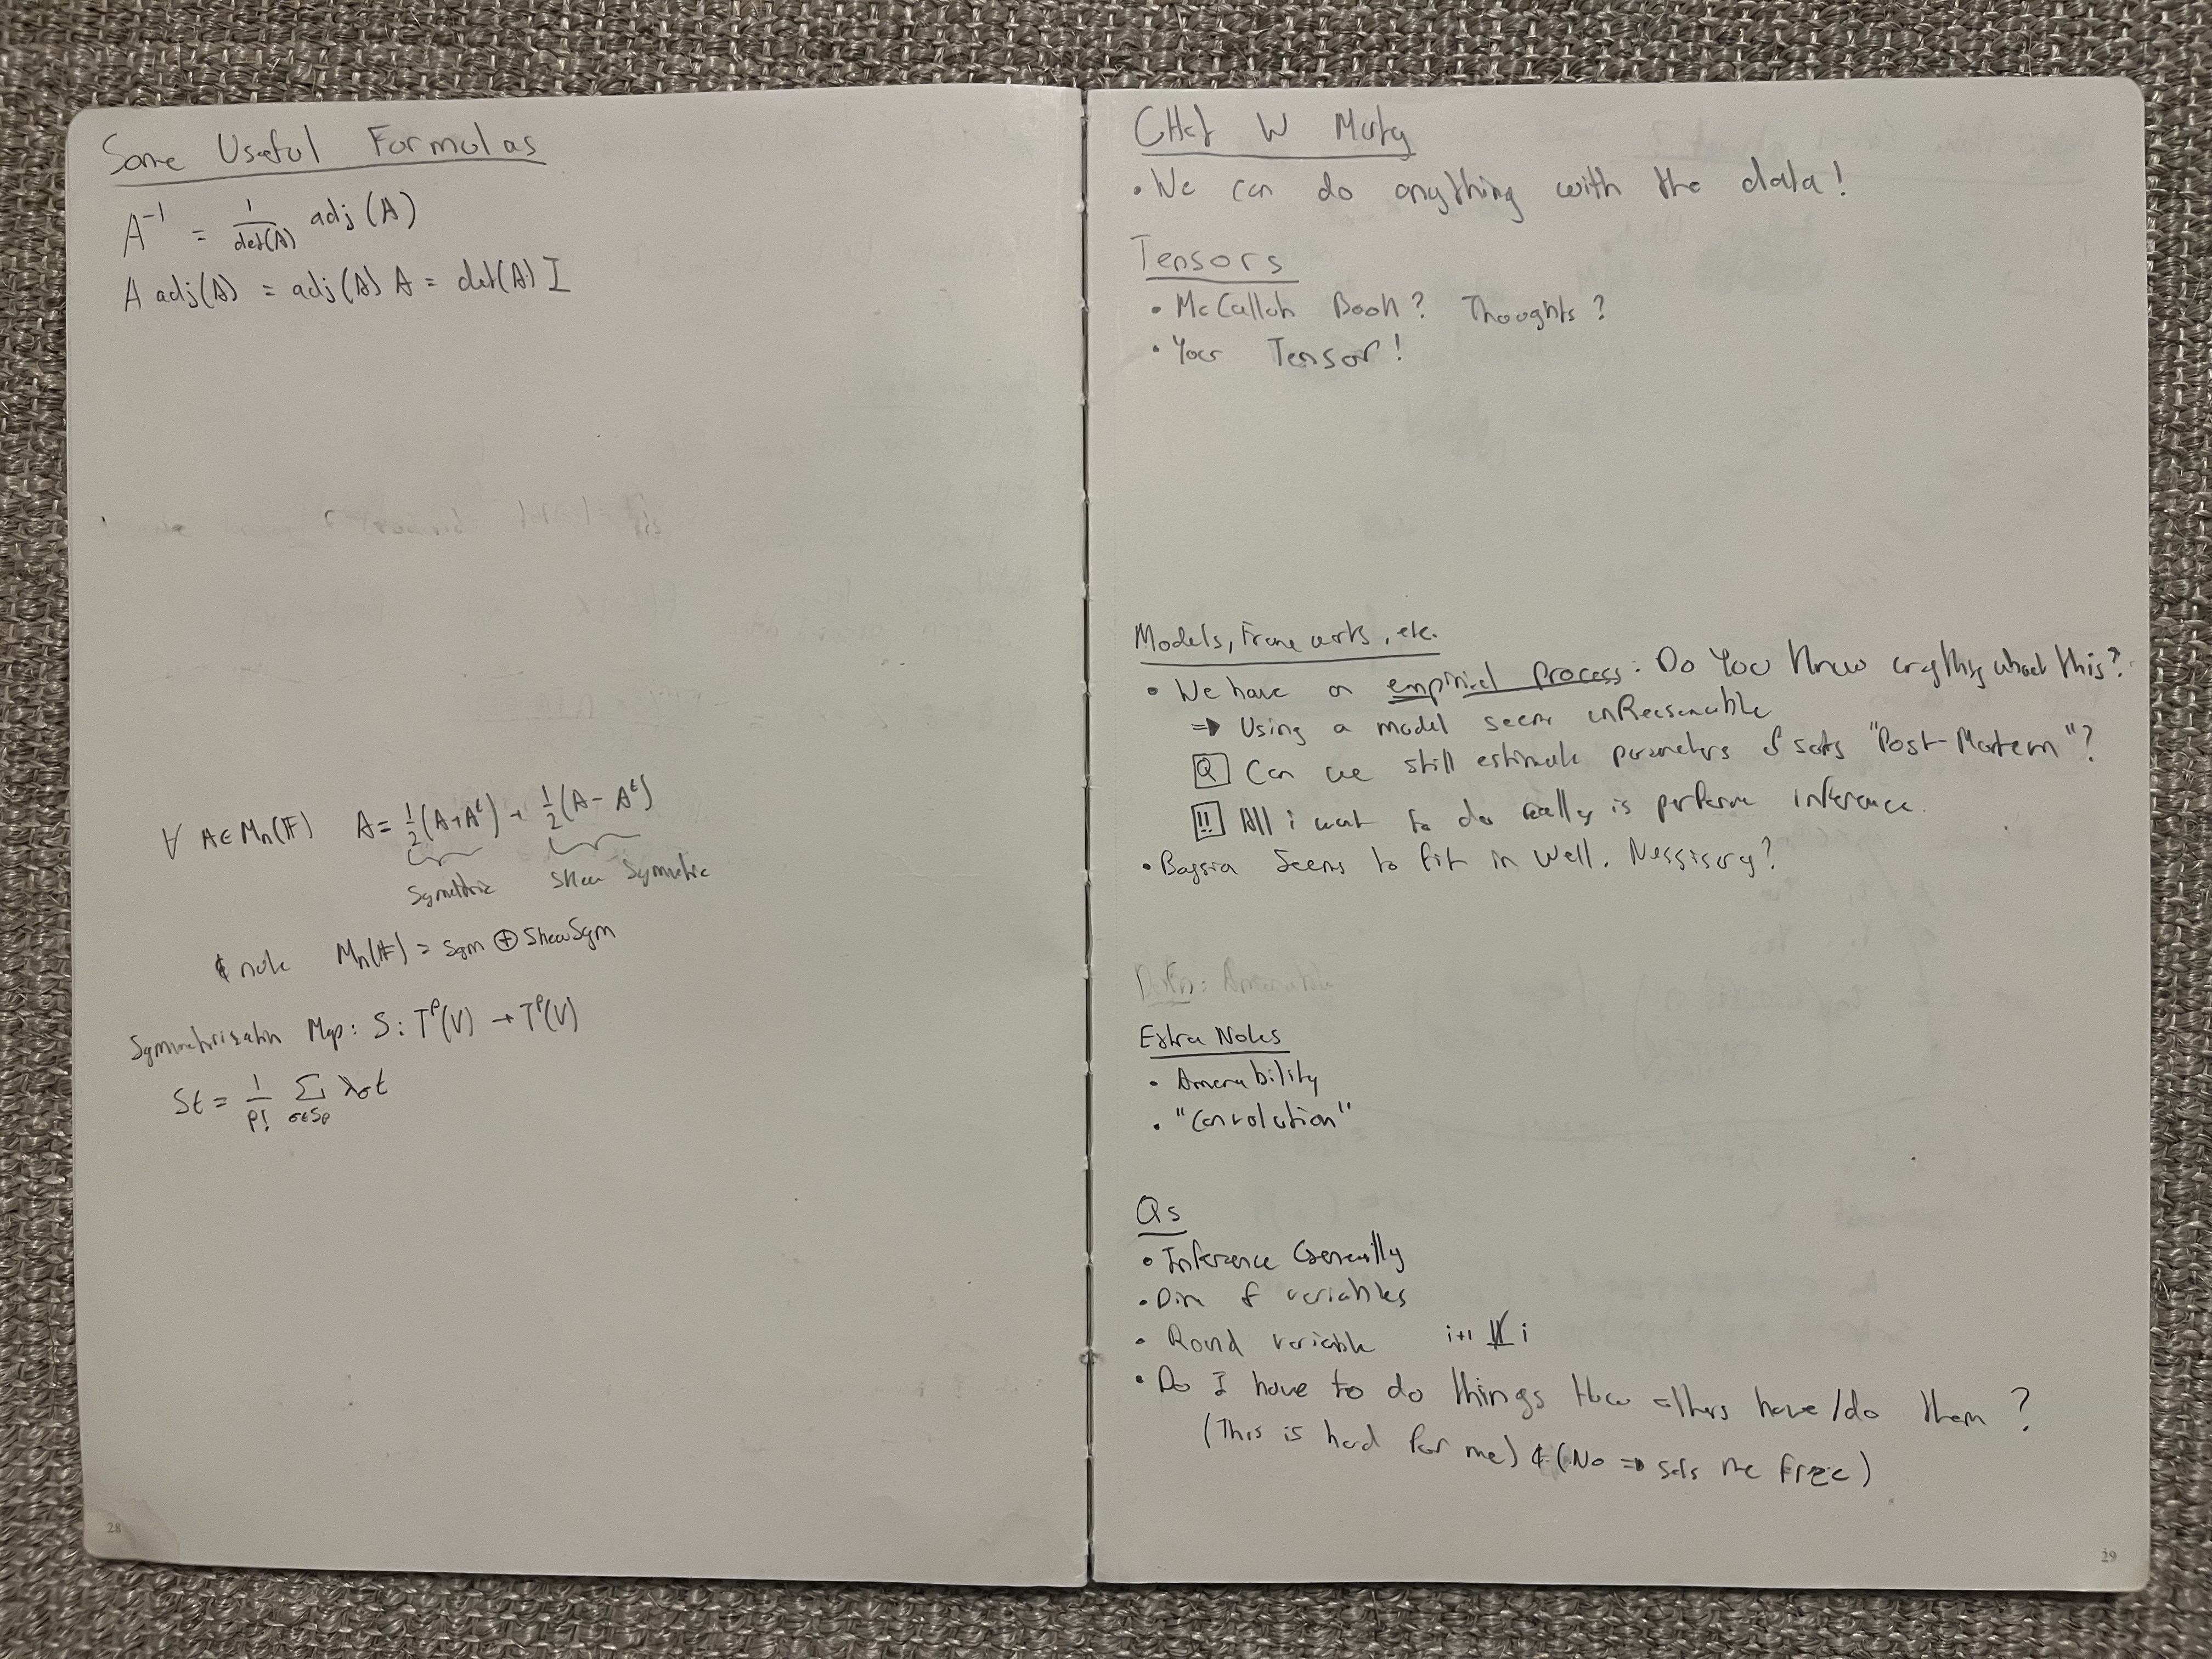 Some Useful Formulas
A⁻¹ = 1/det(A) adj(A)
A adj(A) = adj(A) A = det(A) I
∀ A ∈ Mn(F) A = 1/2(A+Aᵗ) + 1/2(A-Aᵗ)
Symmetric Skew Symmetric
Mn(F) = Sym ⊕ SkewSym
Symmetrisation Map: S: Tᵖ(V) → Tᵖ(V)
St = 1/p! Σ σ∈Sp λσt
28
Chat W
• We can do anything with the data!
Tensors
• McCullah Book? Thoughts?
• Your Tensor!
Models, Frameworks, etc.
• We have an empirical process: Do you know anything about this?
⇒ Using a model seems unReasonable
Q Can we still estimate parameters & sets "Post-Mortem"?
!!! All i want to do really is perform inference.
• Baysian Seems to fit in well. Nessisary?
Defn: Amenable
Extra Notes
• Amenability
• "Convolution"
Qs
• Inference Generally
• Dim of variables
• Rand variable i+1 i
• Do I have to do things how others have/do them?
(This is hard for me) & (No ⇒ sets me free)
29